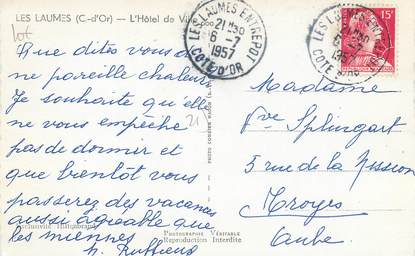 LES LAUMES (C.-d'Or) — L'Hôtel de Ville
lot
LES LAUMES ENTREPOT
21 H 30
6-7
1957
COTE-D'OR
LES LAUMES ENTREPOT
1957
COTE-D'OR
15F
Que dites vous d'u
ne pareille chaleur
Je souhaite qu'elle
ne vous empêche
pas de dormir et
que bientôt vous
passerez des vacances
aussi agréable que
les miennes
21
Madame
Vve Splingart
5 rue de la Mission
Troyes
Aube
PHOTOGRAPHIE VÉRITABLE
Reproduction Interdite